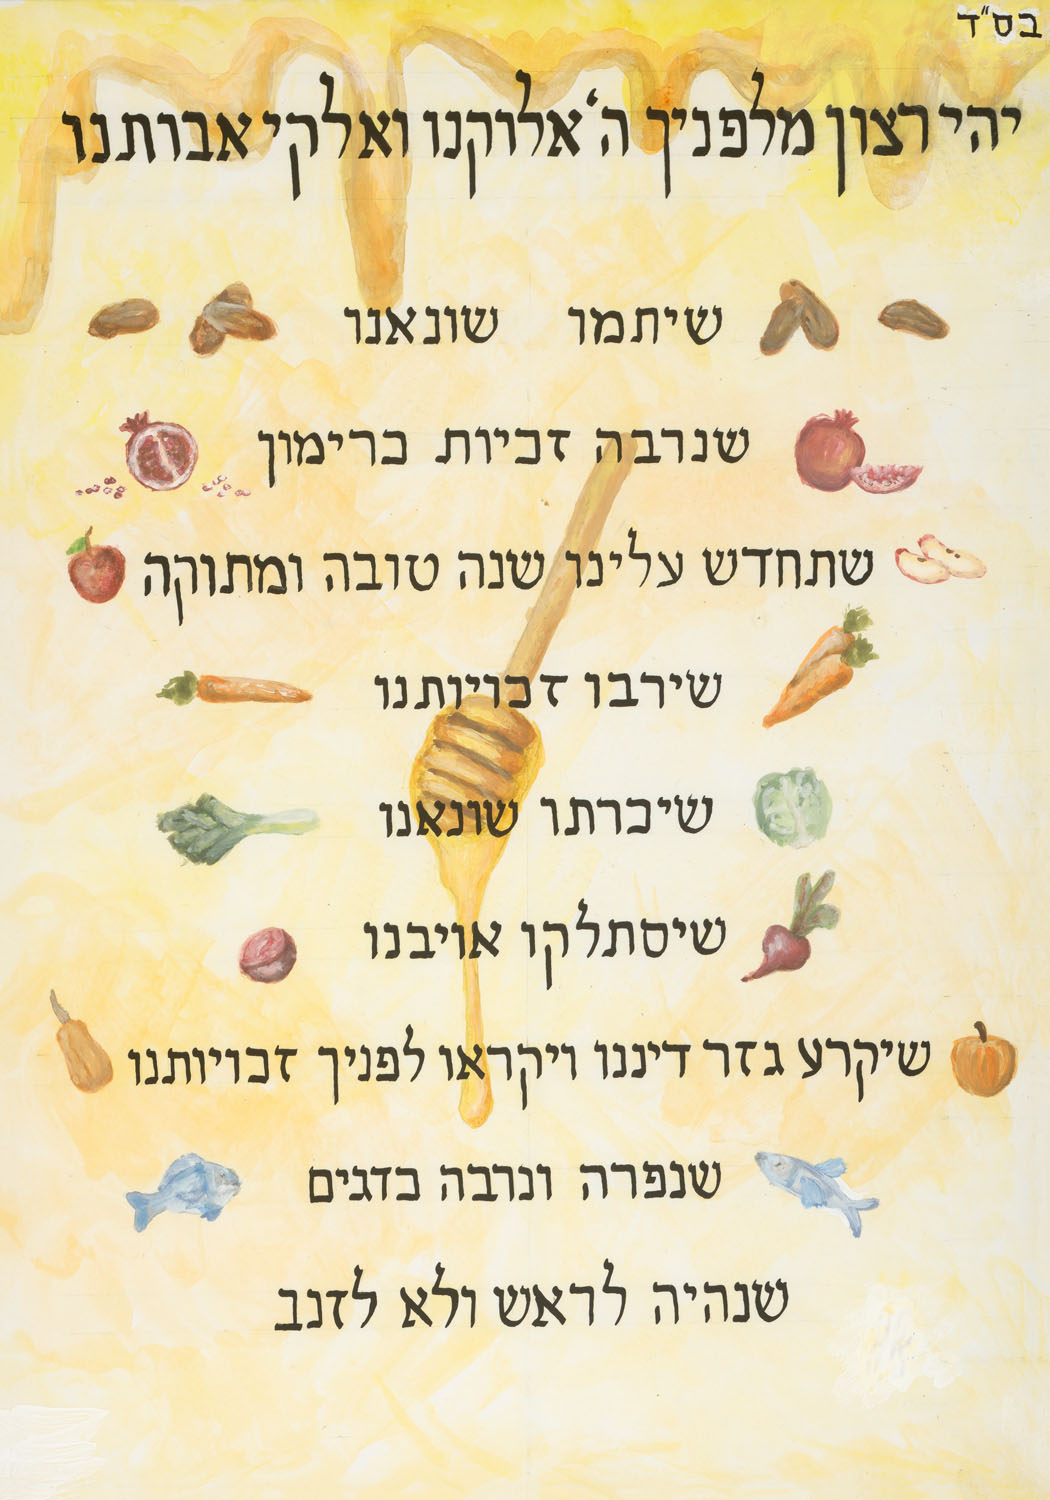 בס"ד
יהי רצון מלפניך ה' אלוקנו ואלקי אבותנו
שיתמו שונאנו
שנרבה זכיות כרימון
שתחדש עלינו שנה טובה ומתוקה
שירבו זכויותנו
שיכרתו שונאנו
שיסתלקו אויבנו
שיקרע גזר דיננו ויקראו לפניך זכויותנו
שנפרה ונרבה כדגים
שנהיה לראש ולא לזנב